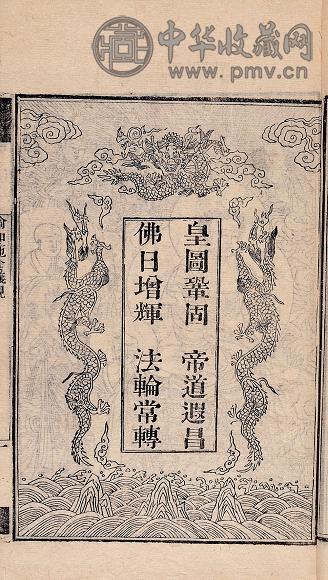 中华收藏网
www.pmv.cn
皇圖鞏固 帝道遐昌
佛日增輝 法輪常轉